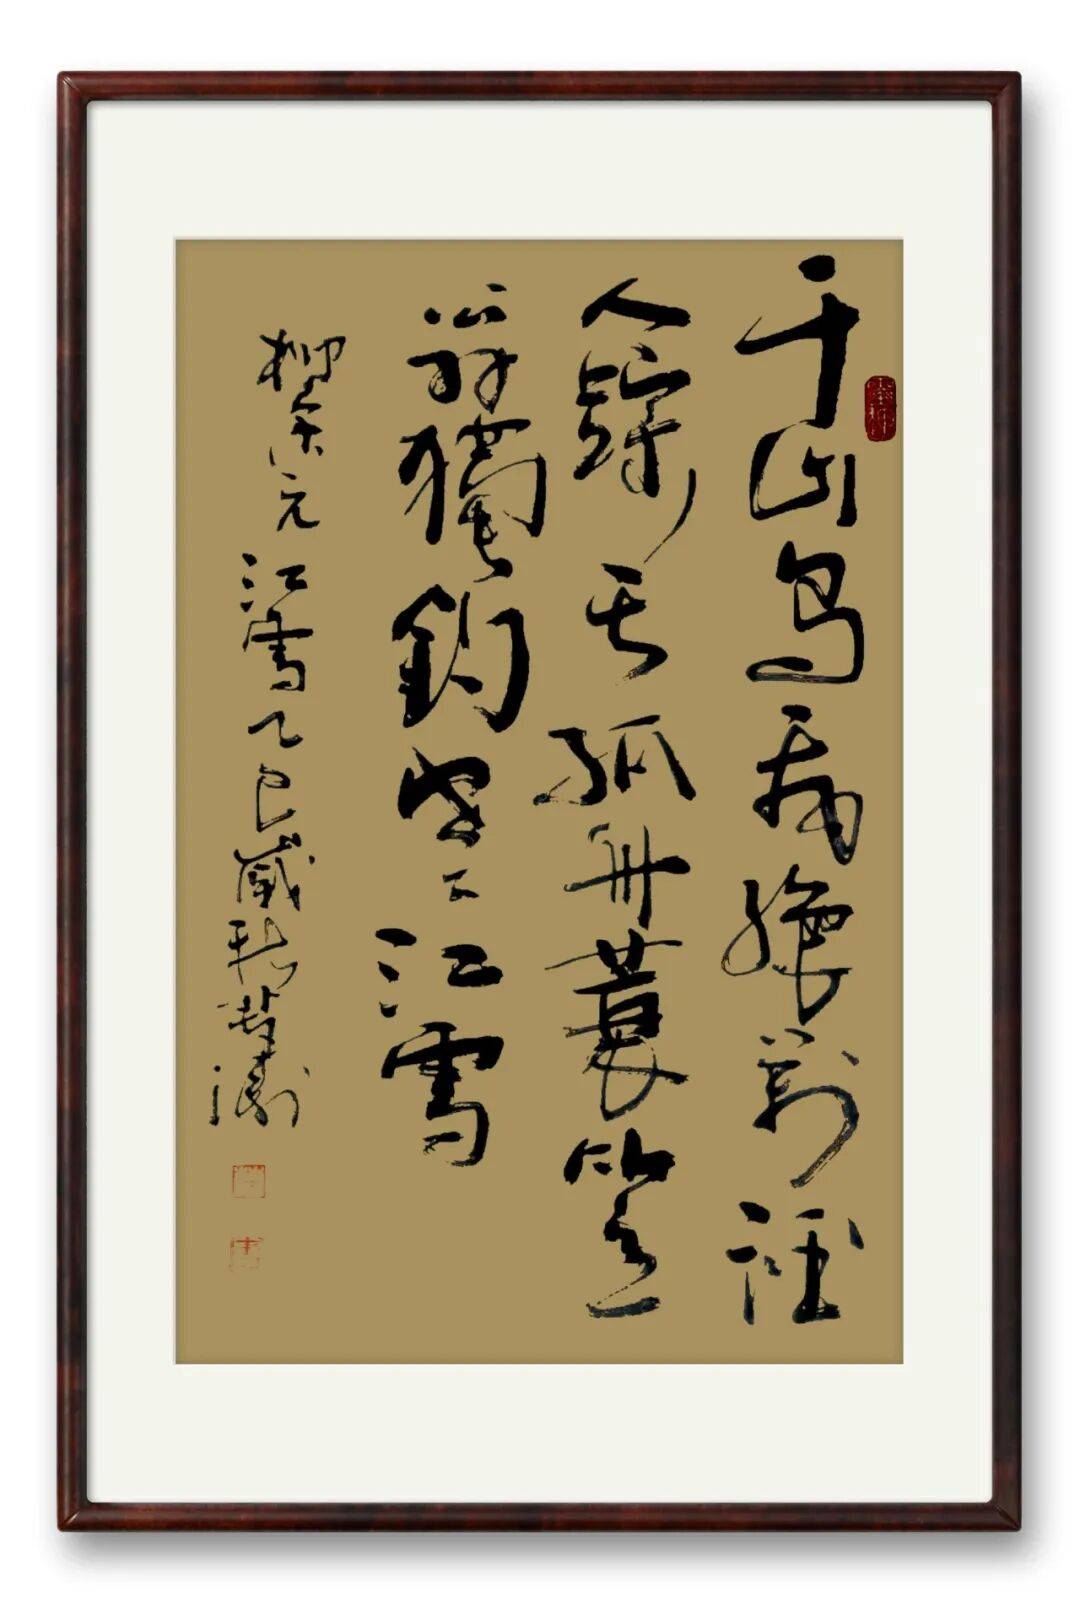 千山鳥飛絕萬徑
人蹤滅孤舟蓑笠
翁獨釣寒江雪
柳宗元江雪乙巳歲秋